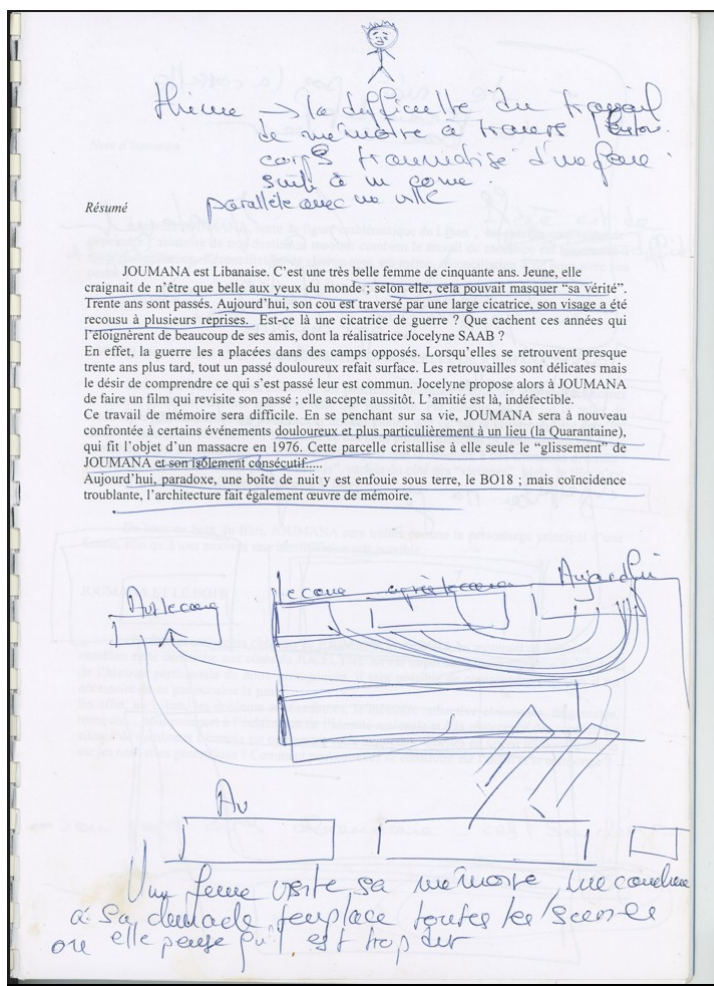 thème → la difficulté du travail
de mémoire à travers
corps traumatisé d'une
suite à un coma
parallèle avec une ville
Résumé
JOUMANA est Libanaise. C'est une très belle femme de cinquante ans. Jeune, elle
craignait de n'être que belle aux yeux du monde ; selon elle, cela pouvait masquer “sa vérité”.
Trente ans sont passés. Aujourd'hui, son cou est traversé par une large cicatrice, son visage a été
recousu à plusieurs reprises. Est-ce là une cicatrice de guerre ? Que cachent ces années qui
l'éloignèrent de beaucoup de ses amis, dont la réalisatrice Jocelyne SAAB ?
En effet, la guerre les a placées dans des camps opposés. Lorsqu'elles se retrouvent presque
trente ans plus tard, tout un passé douloureux refait surface. Les retrouvailles sont délicates mais
le désir de comprendre ce qui s'est passé leur est commun. Jocelyne propose alors à JOUMANA
de faire un film qui revisite son passé ; elle accepte aussitôt. L'amitié est là, indéfectible.
Ce travail de mémoire sera difficile. En se penchant sur sa vie, JOUMANA sera à nouveau
confrontée à certains événements douloureux et plus particulièrement à un lieu (la Quarantaine),
qui fit l'objet d'un massacre en 1976. Cette parcelle cristallise à elle seule le “glissement” de
JOUMANA et son isolement consécutif.....
Aujourd'hui, paradoxe, une boîte de nuit y est enfouie sous terre, le BO18 ; mais coïncidence
troublante, l'architecture fait également œuvre de mémoire.
Avt le coma le coma après le coma Aujourdhui
JOUMANA ET LE BO18
Av
Une femme visite sa mémoire, une
à sa demande remplace toutes les scènes
ou elle pense qu'l est trop dur